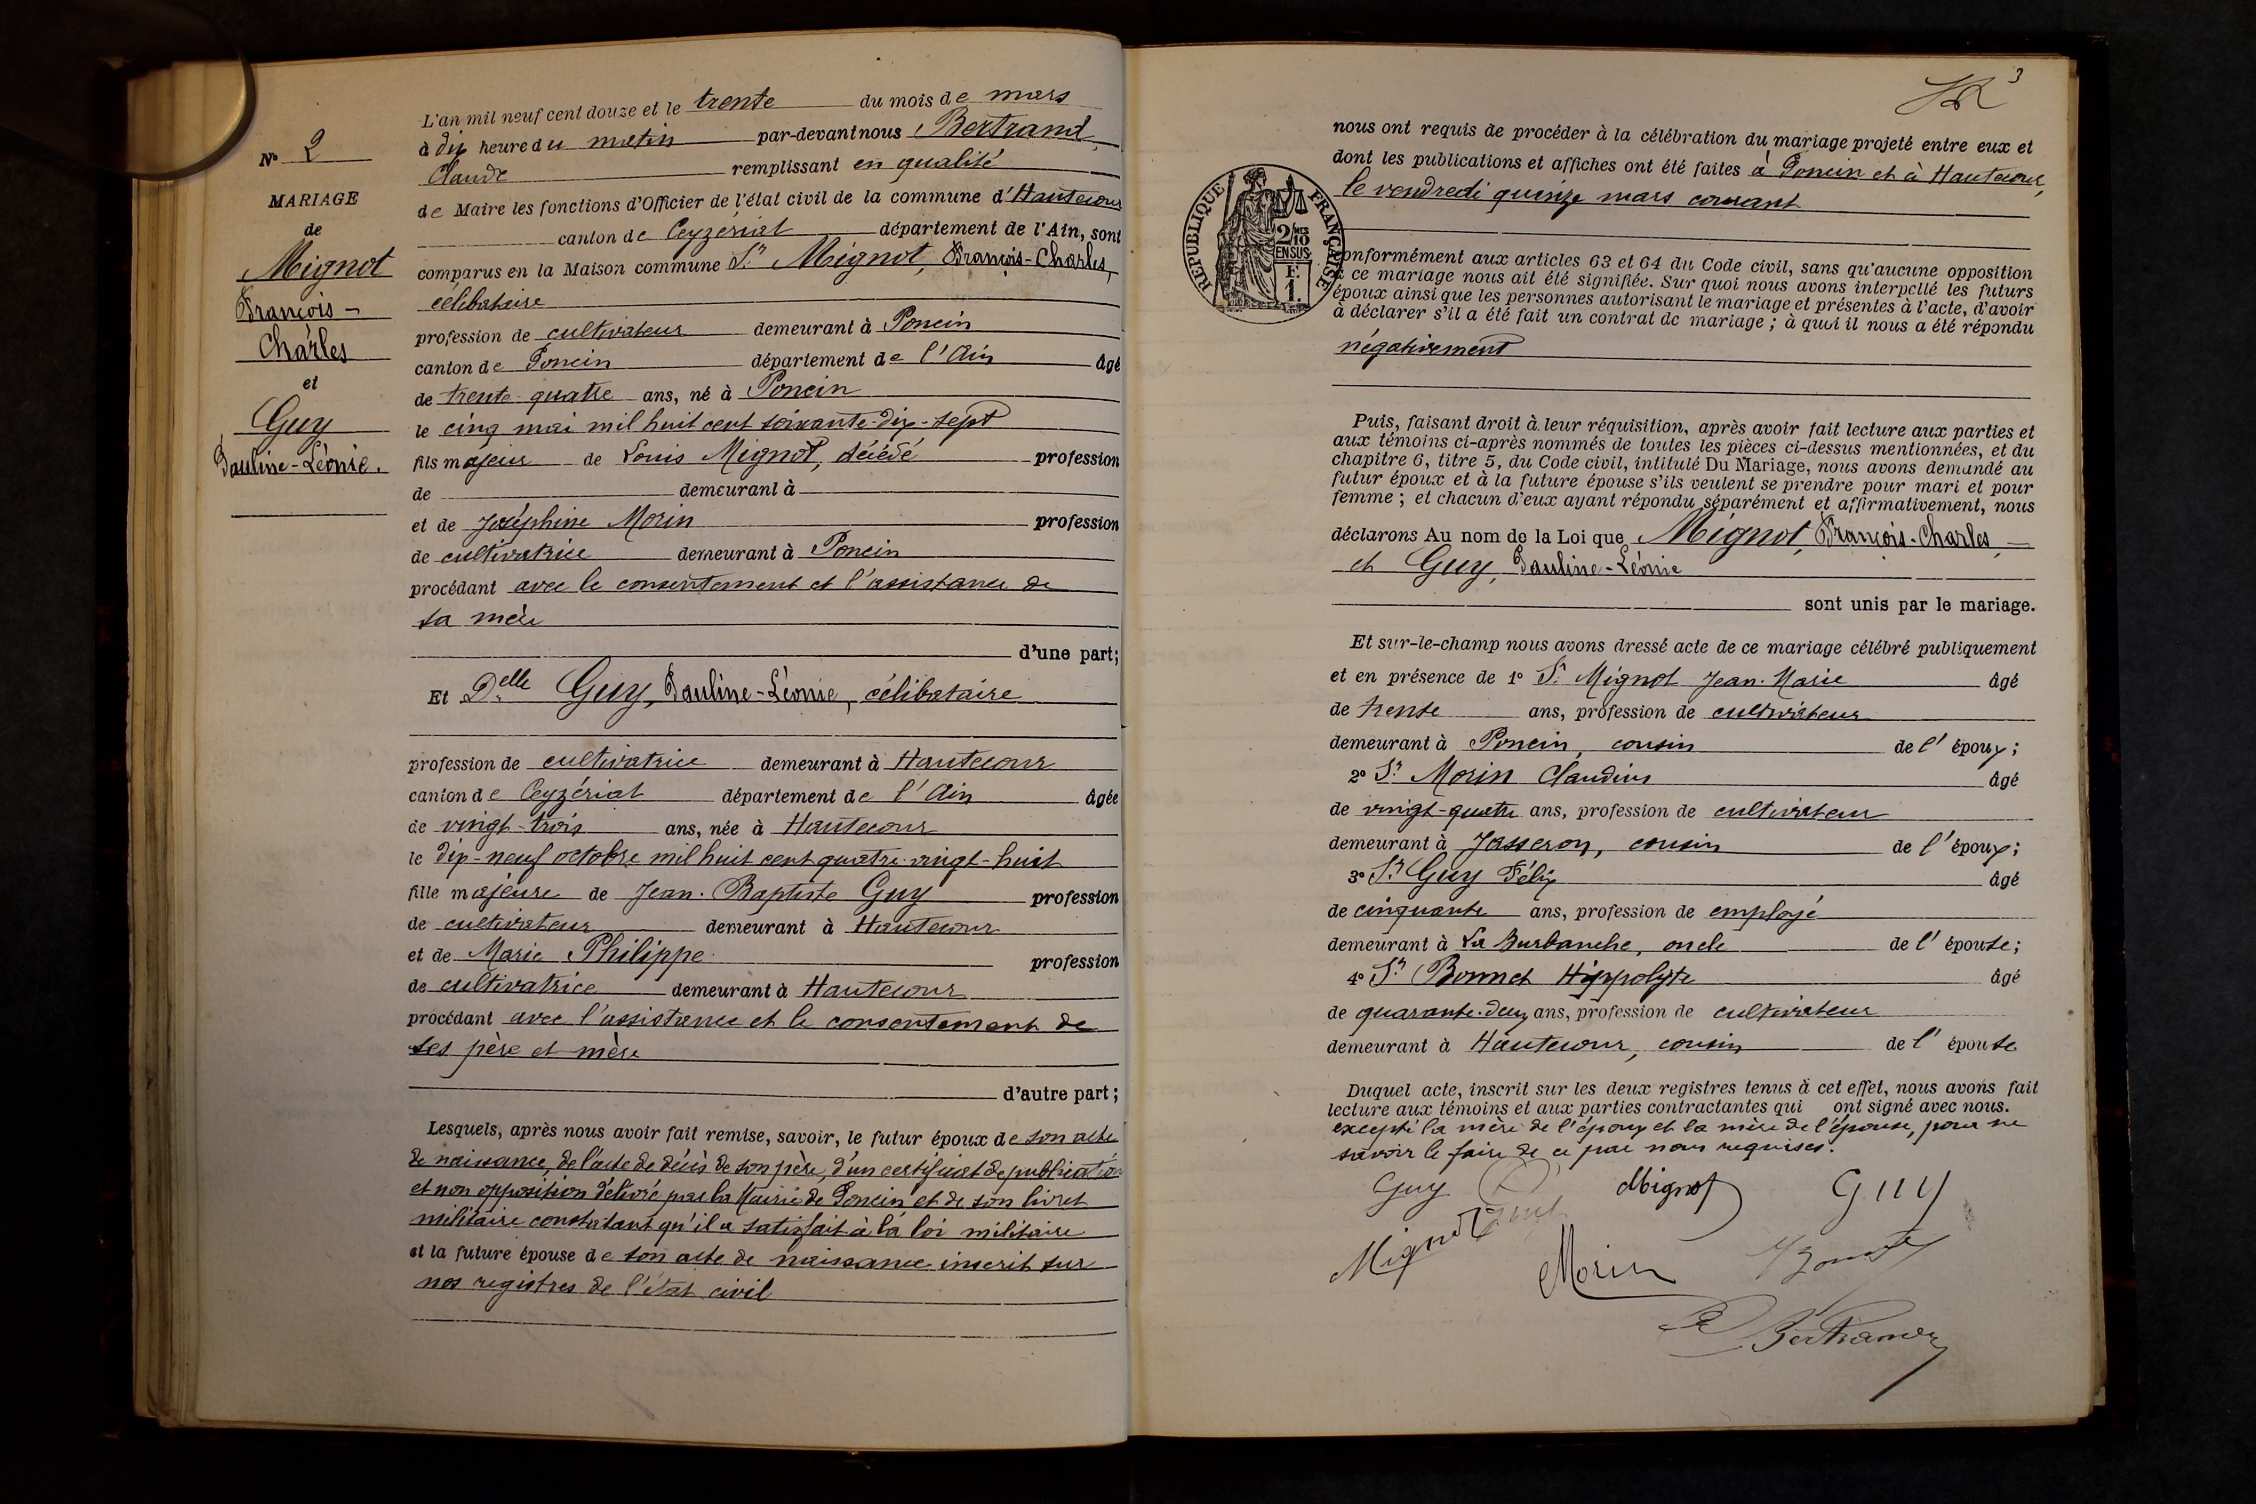 N° 2
MARIAGE
de
Mignot
François-
Charles
et
Guy
Pauline-Léonie.
L'an mil neuf cent douze et le trente du mois de mars
à dix heure du matin par-devant nous Bertrand,
Claude remplissant en qualité
de Maire les fonctions d'Officier de l'état civil de la commune d'Hautecour
canton de Ceyzériat département de l'Ain, sont
comparus en la Maison commune Sr Mignot, François-Charles,
célibataire
profession de cultivateur demeurant à Poncin
canton de Poncin département de l'Ain âgé
de trente-quatre ans, né à Poncin
le cinq mai mil huit cent soixante-dix-sept
fils majeur de Louis Mignot, décédé profession
de demeurant à
et de Joséphine Morin profession
de cultivatrice demeurant à Poncin
procédant avec le consentement et l'assistance de
sa mère
d'une part;
Et Delle Guy, Pauline-Léonie, célibataire
profession de cultivatrice demeurant à Hautecour
canton de Ceyzériat département de l'Ain âgée
de vingt-trois ans, née à Hautecour
le dix-neuf octobre mil huit cent quatre-vingt-huit
fille majeure de Jean-Baptiste Guy profession
de cultivateur demeurant à Hautecour
et de Marie Philippe profession
de cultivatrice demeurant à Hautecour
procédant avec l'assistance et le consentement de
ses père et mère
d'autre part;
Lesquels, après nous avoir fait remise, savoir, le futur époux de son acte
de naissance, de l'acte de décès de son père, d'un certificat de publication
et non opposition délivré par la Mairie de Poncin et de son livret
militaire constatant qu'il a satisfait à la loi militaire
et la future épouse de son acte de naissance inscrit sur
nos registres de l'état civil
3
nous ont requis de procéder à la célébration du mariage projeté entre eux et
dont les publications et affiches ont été faites à Poncin et à Hautecour,
le vendredi quinze mars courant
RÉPUBLIQUE FRANÇAISE
2/10
EN SUS
F.
1.
conformément aux articles 63 et 64 du Code civil, sans qu'aucune opposition
à ce mariage nous ait été signifiée. Sur quoi nous avons interpellé les futurs
époux ainsi que les personnes autorisant le mariage et présentes à l'acte, d'avoir
à déclarer s'il a été fait un contrat de mariage; à quoi il nous a été répondu
négativement
Puis, faisant droit à leur réquisition, après avoir fait lecture aux parties et
aux témoins ci-après nommés de toutes les pièces ci-dessus mentionnées, et du
chapitre 6, titre 5, du Code civil, intitulé Du Mariage, nous avons demandé au
futur époux et à la future épouse s'ils veulent se prendre pour mari et pour
femme; et chacun d'eux ayant répondu séparément et affirmativement, nous
déclarons Au nom de la Loi que Mignot, François-Charles,
et Guy, Pauline-Léonie
sont unis par le mariage.
Et sur-le-champ nous avons dressé acte de ce mariage célébré publiquement
et en présence de 1° Sr Mignot Jean-Marie âgé
de trente ans, profession de cultivateur
demeurant à Poncin, cousin de l'époux;
2° Sr Morin Claudius âgé
de vingt-quatre ans, profession de cultivateur
demeurant à Jasseron, cousin de l'époux;
3° Sr Guy Félix âgé
de cinquante ans, profession de employé
demeurant à La Burbanche, oncle de l'épouse;
4° Sr Bonnet Hippolyte âgé
de quarante-deux ans, profession de cultivateur
demeurant à Hautecour, cousin de l'épouse
Duquel acte, inscrit sur les deux registres tenus à cet effet, nous avons fait
lecture aux témoins et aux parties contractantes qui ont signé avec nous.
excepté la mère de l'époux et la mère de l'épouse, pour ne
savoir le faire de ce par nous requises.
Guy Mignot Guy
Mignot Morin
Bertrand